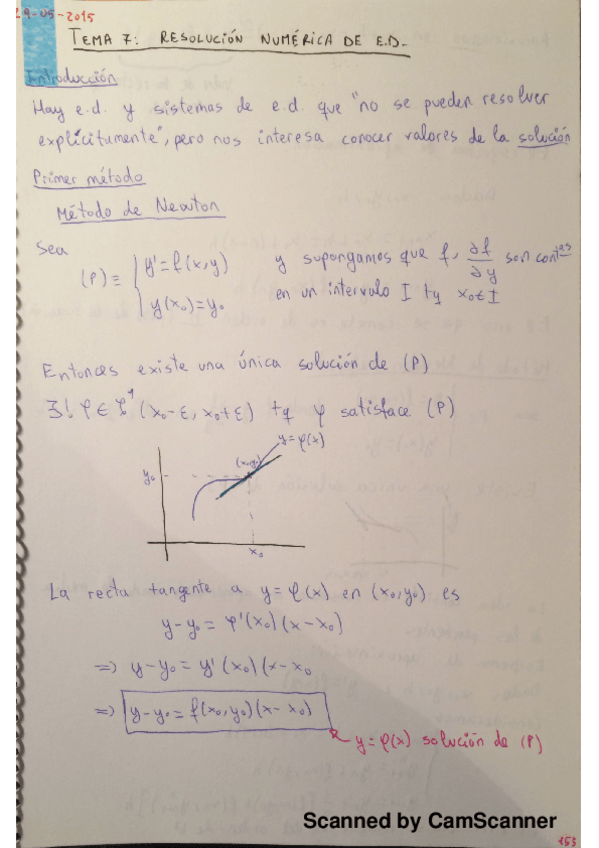 29-05-2015
TEMA 7: RESOLUCIÓN NUMÉRICA DE E.D.
Introducción
Hay e.d. y sistemas de e.d. que "no se pueden resolver
explícitamente", pero nos interesa conocer valores de la solución
Primer método
Método de Newton
Sea (P) ≡ { y' = f(x,y) y supongamos que f, ∂f/∂y son contᵃˢ
y(x₀) = y₀ en un intervalo I tq x₀ ∈ I
Entonces existe una única solución de (P)
∃! φ ∈ C¹ (x₀-ε, x₀+ε) tq φ satisface (P)
y = φ(x)
(x₀,y₀)
y₀
x₀
La recta tangente a y = φ(x) en (x₀,y₀) es
y - y₀ = φ'(x₀)(x - x₀)
=> y - y₀ = y'(x₀)(x - x₀
=> y - y₀ = f(x₀,y₀)(x - x₀)
y = φ(x) solución de (P)
Scanned by CamScanner
153